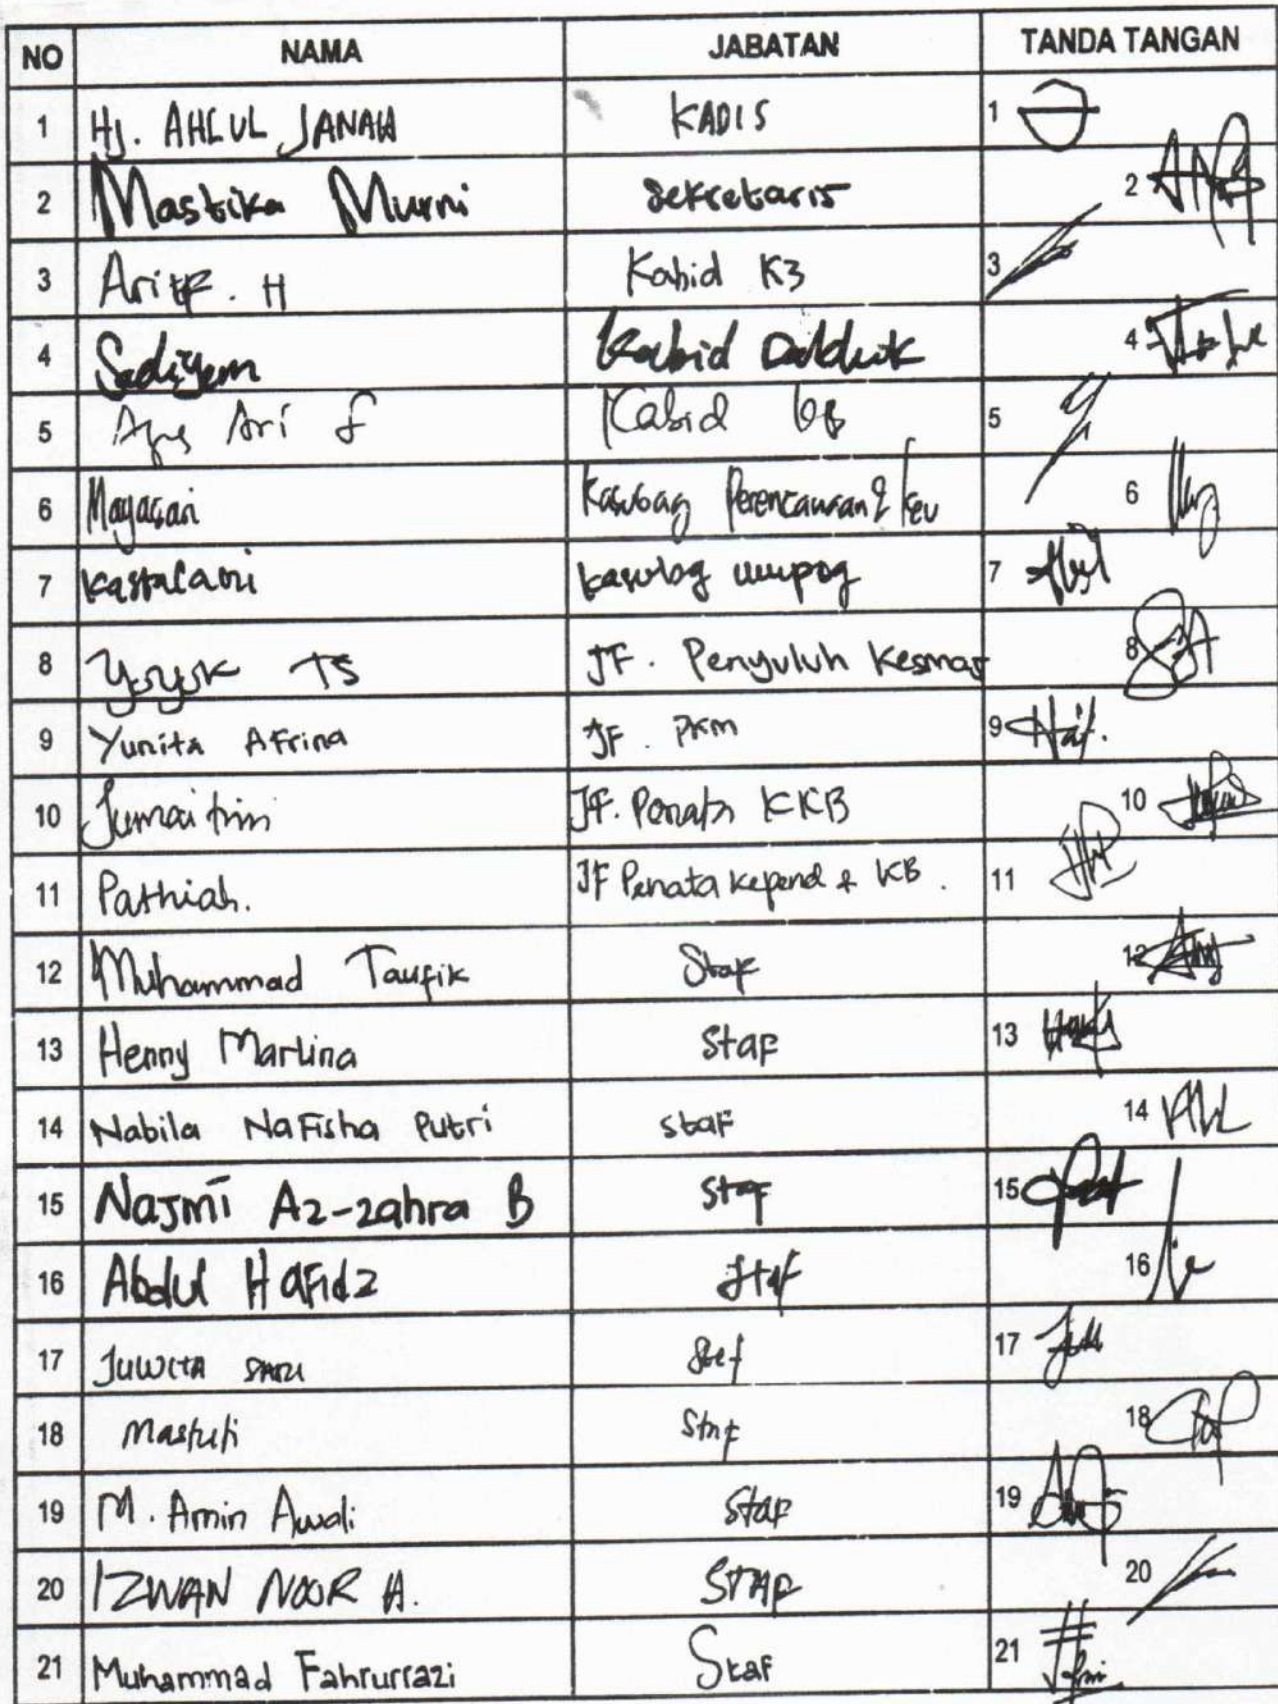 NO NAMA JABATAN TANDA TANGAN
1 Hj. AHLUL JANAH KADIS 1
2 Mastika Murni Sekretaris 2
3 Arif . H Kabid K3 3
4 Sadiyem Kabid Dalduk 4
5 Agus Ari Kabid KB 5
6 Mayasari Kasubag Perencanaan & keu 6
7 Kastalani kasubag umpeg 7
8 Yuyuk TS JF. Penyuluh Kesmas 8
9 Yunita AFrina JF . PKM 9
10 Jumaitrin JF. Penata KKB 10
11 Pathiah. JF Penata kepend & KB . 11
12 Muhammad Taufik Staf 12
13 Henny Marlina Staf 13
14 Nabila NaFisha Putri staf 14
15 Najmi Az-zahra B staf 15
16 Abdul HaFidz staf 16
17 JUWITA SARI Staf 17
18 Mastuti Staf 18
19 M. Amin Awali Staf 19
20 IZWAN NOOR H. STAF 20
21 Muhammad Fahrurrazi Staf 21